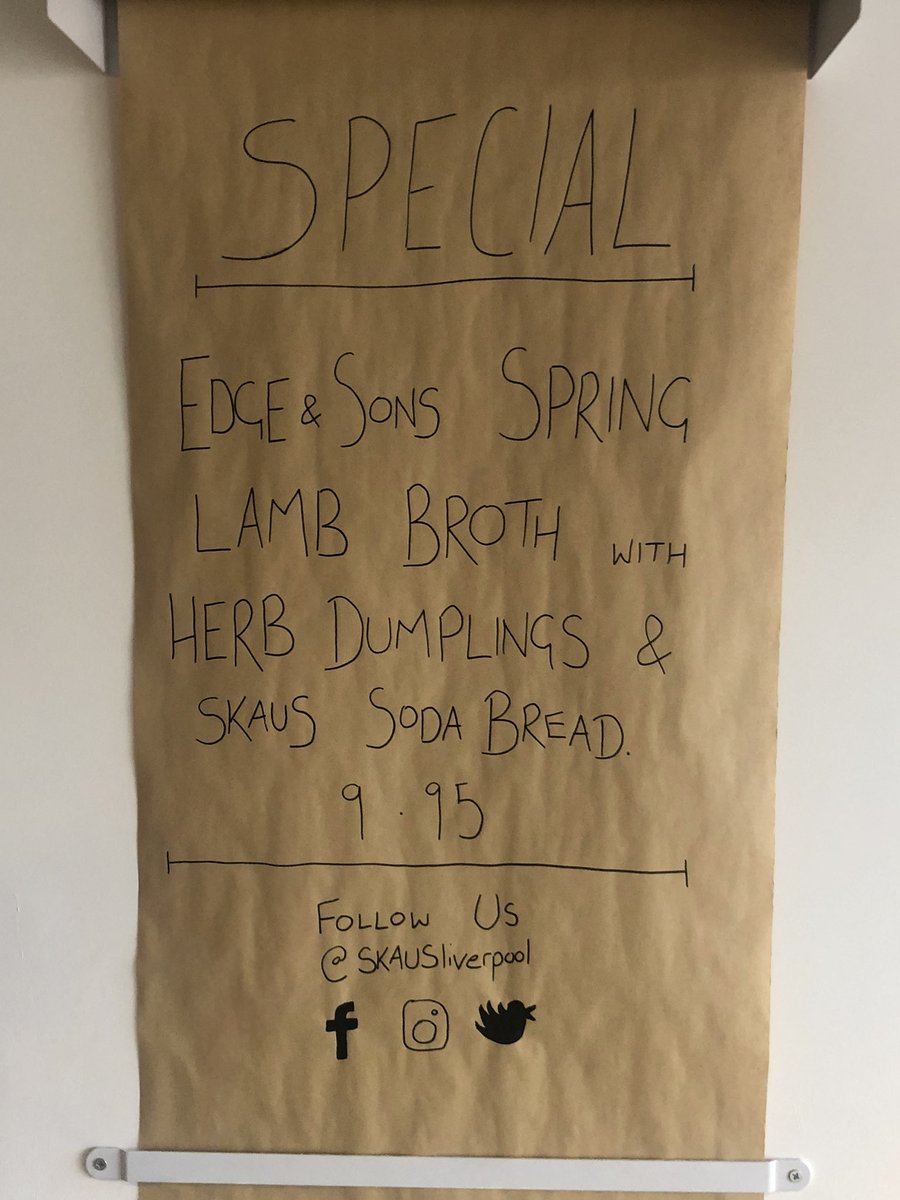 SPECIAL
EDGE & SONS SPRING
LAMB BROTH WITH
HERB DUMPLINGS &
SKAUS SODA BREAD.
9.95
FOLLOW US
@SKAUSliverpool